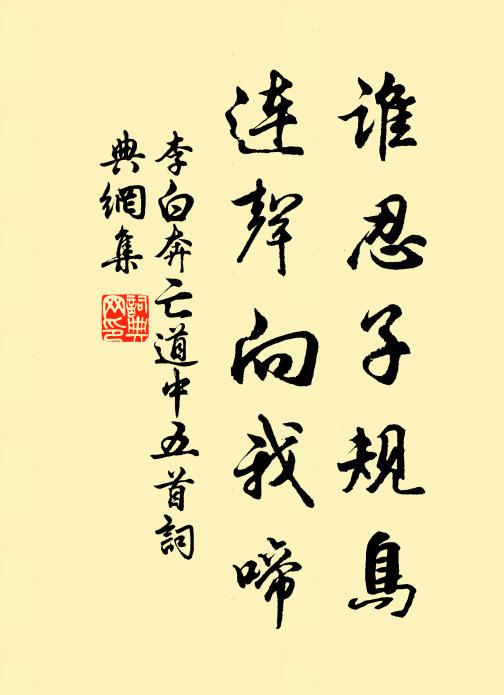 誰忍子規鳥
連聲向我啼
李白奔亡道中五首詞
典網集
詞典網印